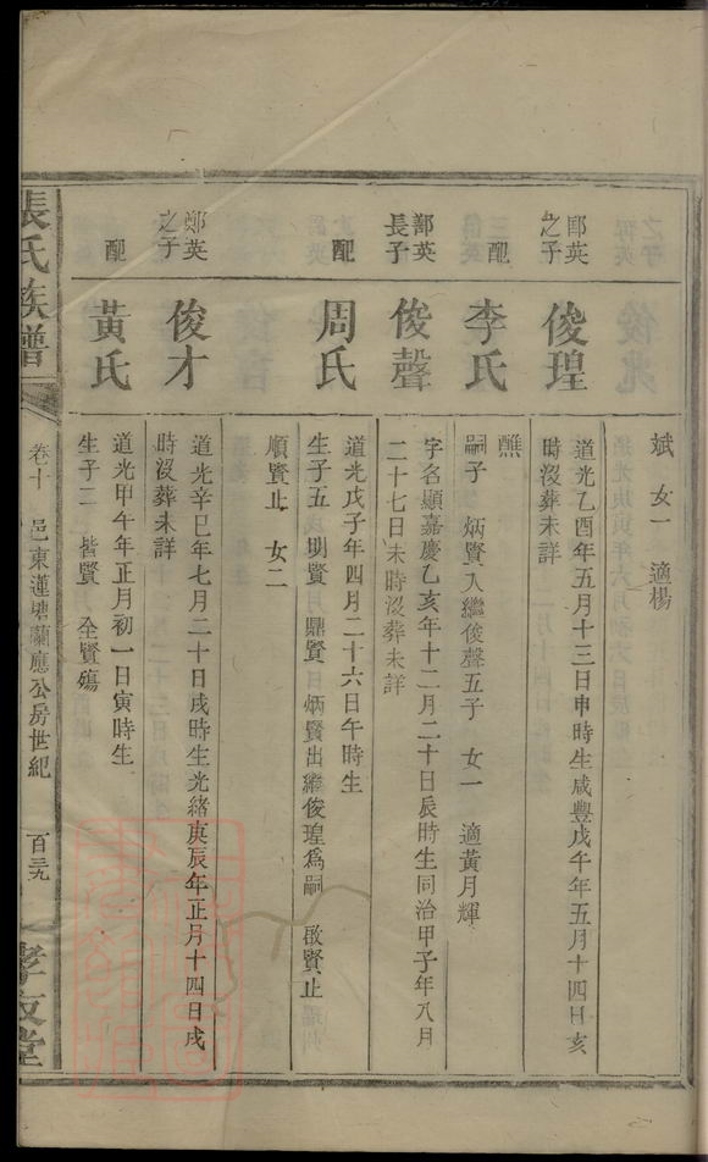 斌　女一　適楊
郾英之子
俊瑝
道光乙酉年五月十三日申時生咸豐戊午年五月十四日亥
時沒葬未詳
配
李氏
醮
嗣子　炳賢入繼俊聲五子　女一　適黃月輝
鄯英長子
俊聲
字名顯嘉慶乙亥年十二月二十日辰時生同治甲子年八月
二十七日未時沒葬未詳
配
周氏
道光戊子年四月二十六日午時生
生子五　明賢　鼎賢　炳賢出繼俊瑝為嗣　啟賢止
順賢止　女二
鄭英之子
俊才
道光辛巳年七月二十日戌時生光緒庚辰年正月十四日戌
時沒葬未詳
配
黃氏
道光甲午年正月初一日寅時生
生子二　皆賢　全賢殤
張氏族譜
卷十　邑東蓮塘蘭應公房世紀
百三九
孝友堂